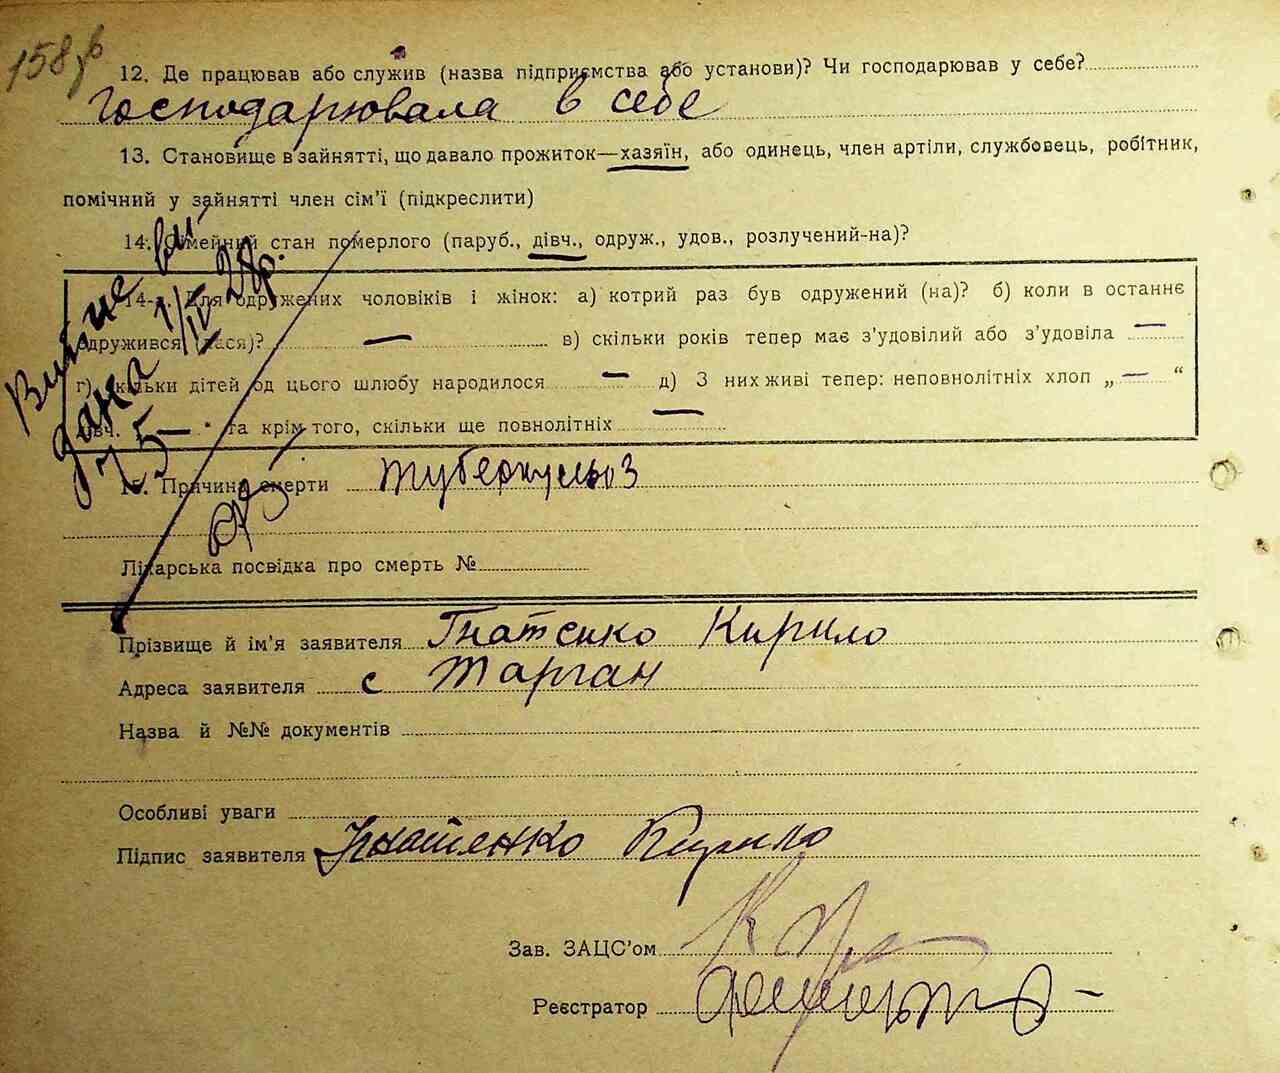 158
12. Де працював або служив (назва підприємства або установи)? Чи господарював у себе?
Господарювала в себе
13. Становище в зайнятті, що давало прожиток—хазяїн, або одинець, член артіли, службовець, робітник,
помічний у зайнятті член сім'ї (підкреслити)
14. Сімейний стан померлого (паруб., дівч., одруж., удов., розлучений-на)?
14-а. Для одружених чоловіків і жінок: а) котрий раз був одружений (на)? б) коли в останнє
одружився (лася)? — в) скільки років тепер має з'удовілий або з'удовіла —
г) скільки дітей од цього шлюбу народилося — д) З них живі тепер: неповнолітніх хлоп „ — “
дівч. — “ та крім того, скільки ще повнолітніх —
15. Причина смерти туберкульоз
Лікарська посвідка про смерть №
Прізвище й ім'я заявителя Гнатенко Кирило
Адреса заявителя с Тарган
Назва й №№ документів
Особливі уваги
Підпис заявителя Гнатенко Кирило
Зав. ЗАЦС'ом
Реєстратор